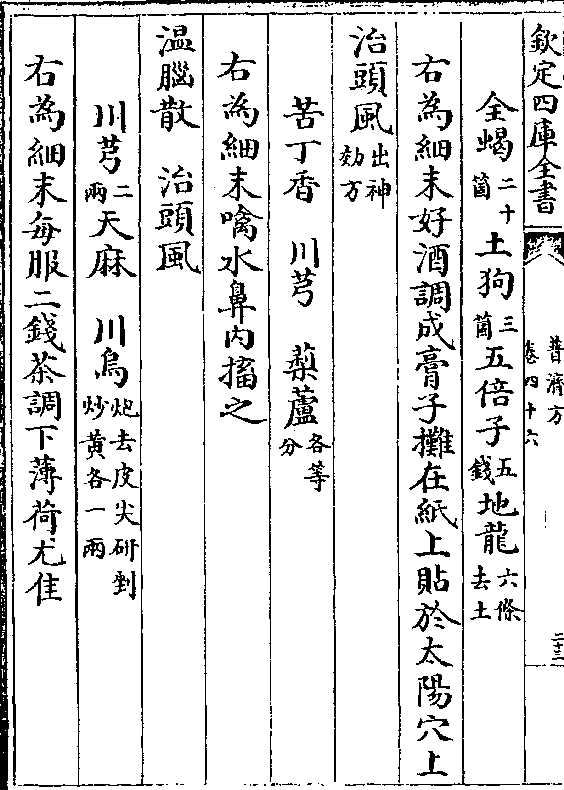 欽定四庫全書
普濟方
卷四十六
二十三
全蝎二十箇土狗三箇五倍子五錢地龍六條去土
右為細末好酒調成膏子攤在紙上貼於太陽穴上
治頭風出神効方
苦丁香 川芎 藜蘆各等分
右為細末噙水鼻内搐之
温腦散 治頭風
川芎二兩天麻 川烏炮去皮尖研剉炒黄各一兩
右為細末每服二錢茶調下薄荷尤佳